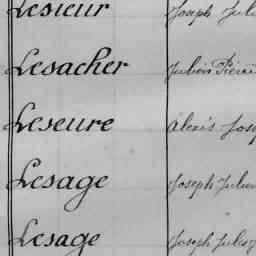 Lesieur Joseph Juli
Lesacher Julien Pierre
Leseure Alexis Jose
Lesage Joseph Julien
Lesage Joseph Julien